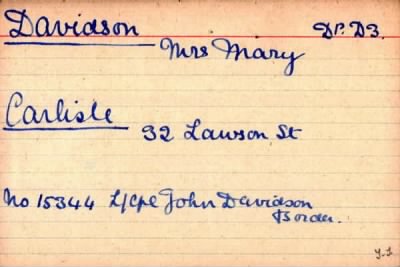 Davidson Dr. D3.
Mrs Mary
Carlisle
32 Lawson St
No 15344 L/Cpl John Davidson
Border.